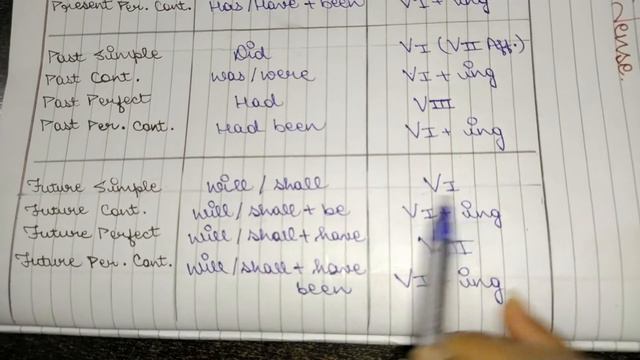 Present Per. Cont. Has/Have + been VI + ing
Past Simple Did VI (VII Aff.)
Past Cont. was/were VI + ing
Past Perfect Had VIII
Past Per. Cont. Had been VI + ing
Future Simple will/shall VI
Future Cont. will/shall + be VI + ing
Future Perfect will/shall + have
Future Per. Cont. will/shall + have been VI ing
Tense.